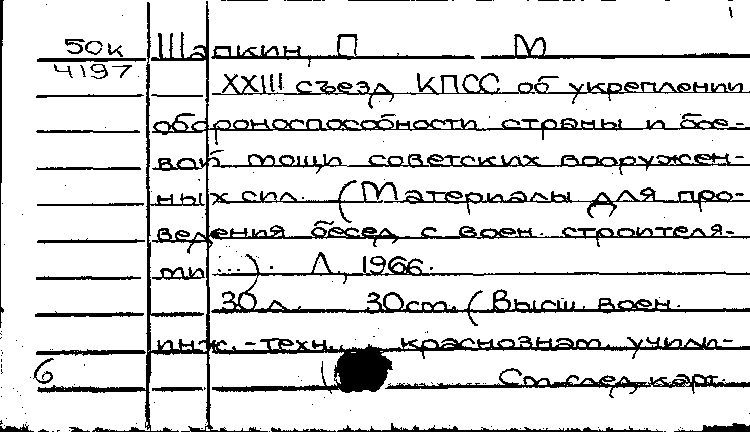 50к Шапкин, П М
4197
XXIII съезд КПСС об укреплении
обороноспособности страны и бое-
вой мощи советских вооружен-
ных сил. (Материалы для про-
ведения бесед с воен. строителя-
ми ...). Л., 1966.
30 л. 30см. (Высш. воен.
инж.-техн. краснознам. учили-
6 См. след. карт.